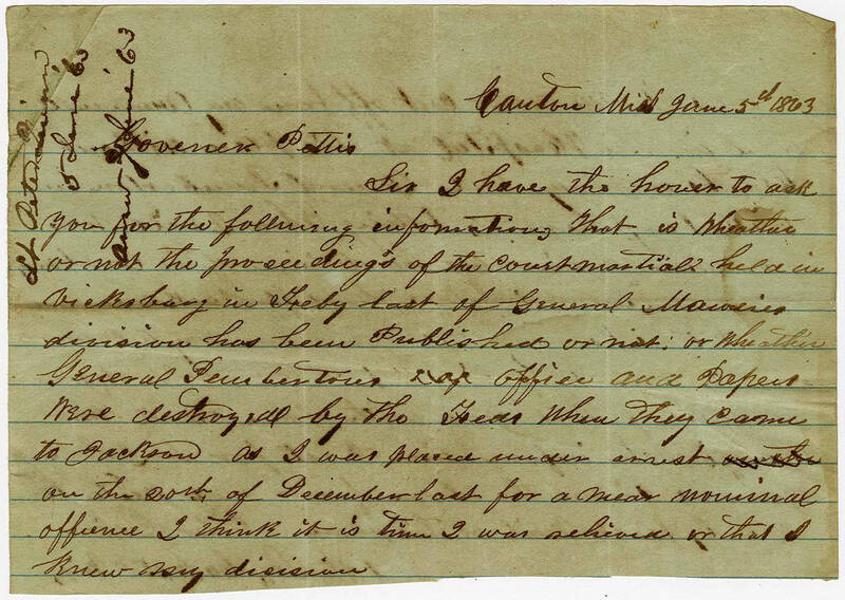 Canton Miss June 5th 1863
Governer Pettis
Sir I have the honer to ask
you for the following information, that is wheather
or not the proseedings of the court martial held in
Vicksburg in Feby last of General
division has been Published or not: or wheather
General Pembertons office and Papers
were destroyed by the Feds when they came
to Jackson as I was placed under arrest
on the 20th of December last for a mear nominal
offence I think it is time I was relieved or that I
knew my dicision
5 June 63
Answd June 63